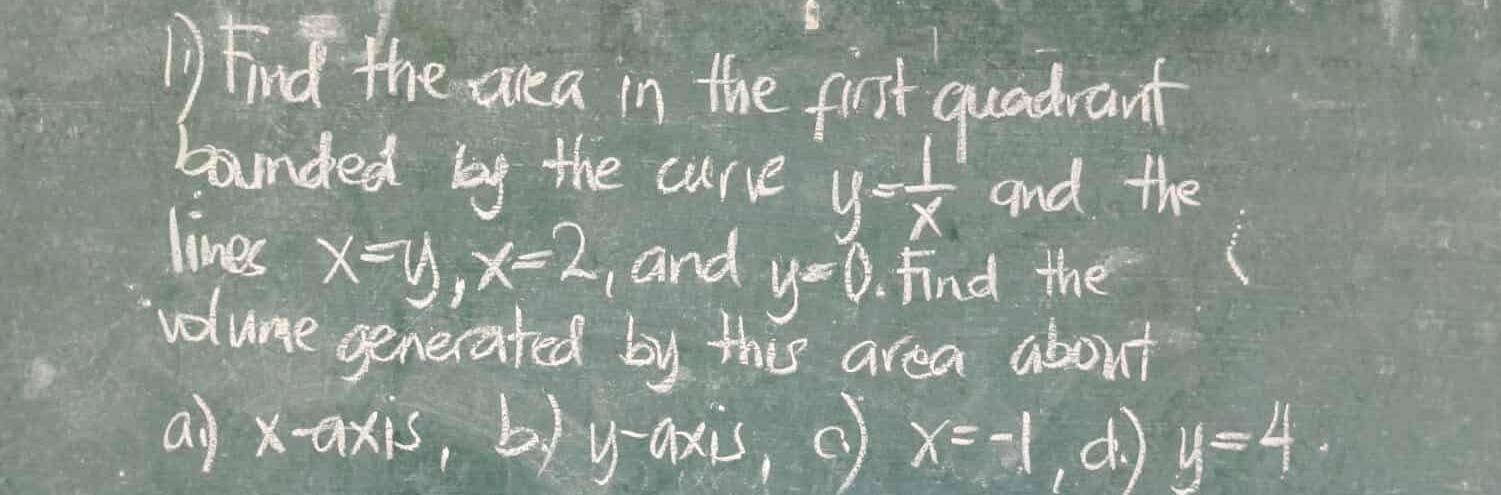 1) Find the area in the first quadrant
bounded by the curve y=1/x and the
lines x=y, x=2, and y=0. Find the
volume generated by this area about
a.) x-axis, b.) y-axis, c.) x=-1, d.) y=4.